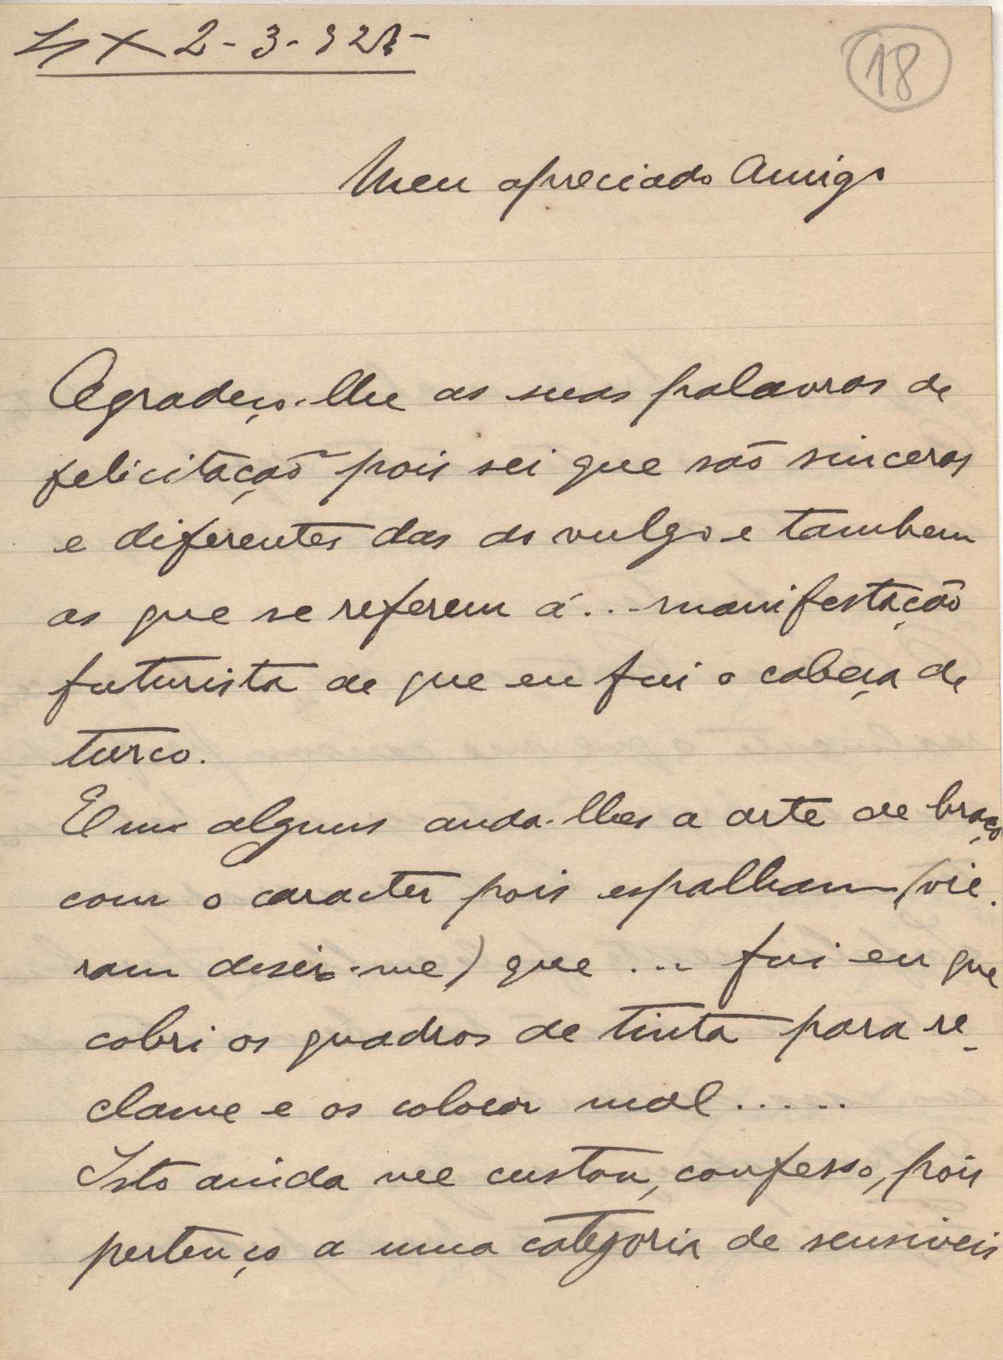 Lx 2-3-925-
18
Meu apreciado Amigo
Agradeço-lhe as suas palavras de
felicitação pois sei que são sinceras
e diferentes das do vulgo e tambem
as que se referem á... manifestação
futurista de que eu fui o cabeça de
turco.
Em alguns anda-lhes a arte de braço
com o caracter pois espalham (vie-
ram diser-me) que ... fui eu que
cobri os quadros de tinta para re-
clame e os colocar mal.....
Isto ainda me custou, confesso, pois
pertenço a uma categoria de sensiveis